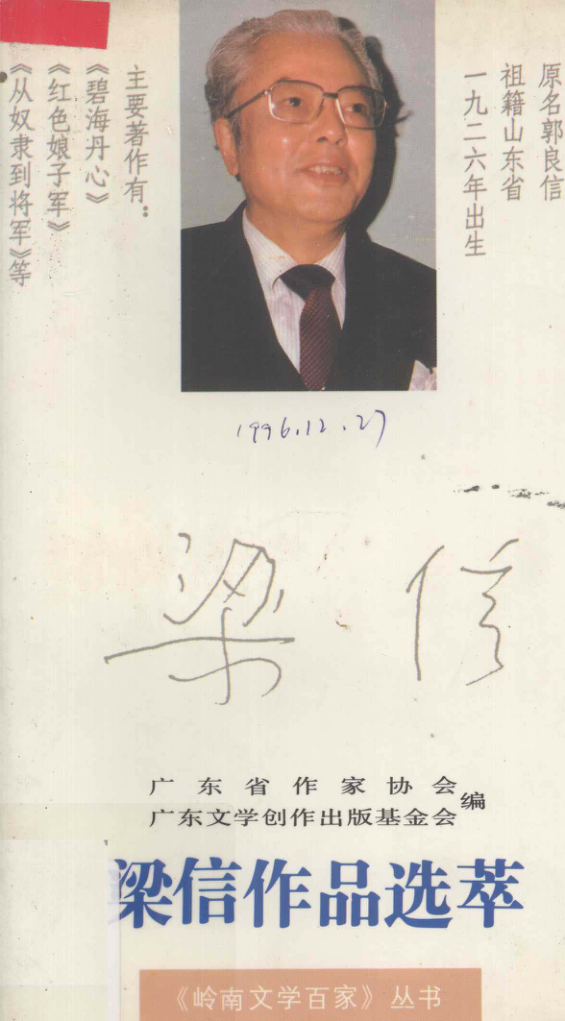 原名郭良信
祖籍山东省
一九二六年出生
主要著作有：
《碧海丹心》
《红色娘子军》
《从奴隶到将军》等
1996.12.27
梁信
广东省作家协会
广东文学创作出版基金会
编
梁信作品选萃
《岭南文学百家》丛书